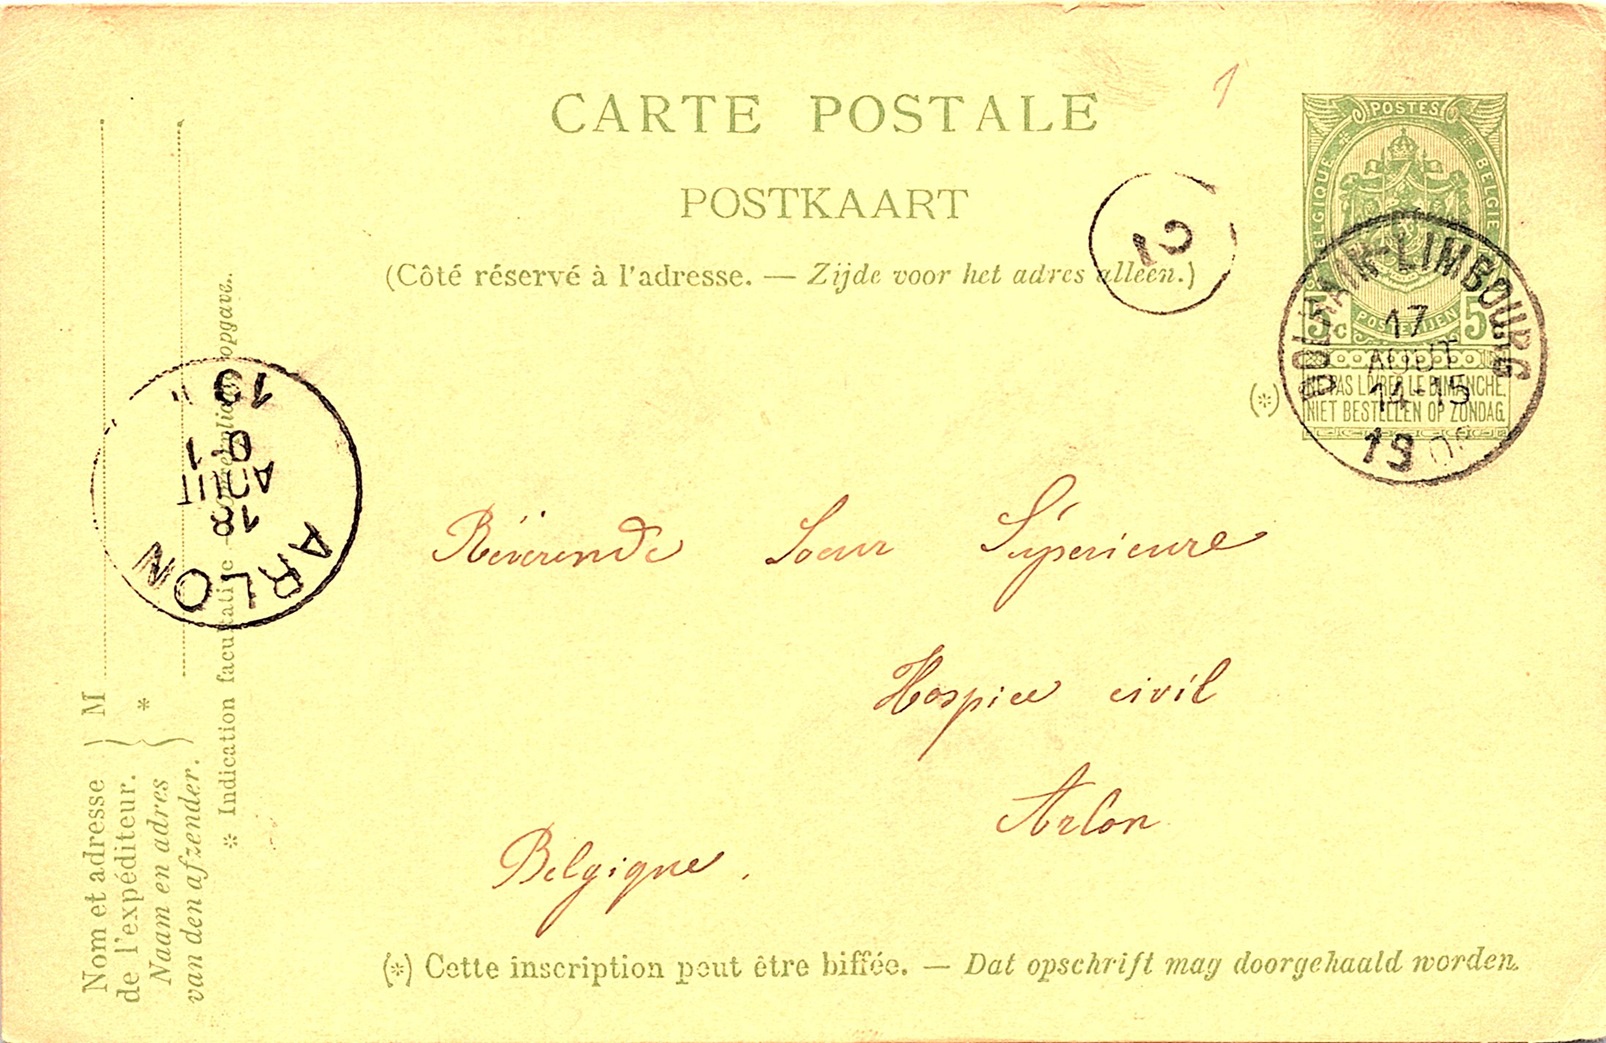 CARTE POSTALE
POSTKAART
(Côté réservé à l'adresse. — Zijde voor het adres alleen.)
POSTES
BELGIQUE
BELGIE
5 c
POSTERIJEN
5 c
NE PAS LIVRER LE DIMANCHE
NIET BESTELLEN OP ZONDAG.
(*)
DOLHAIN-LIMBOURG
17
AOUT
14-15
19
12
ARLON
18
AOUT
19
Révérende Soeur Supérieure
Hospice civil
Arlon
Belgique.
(*) Cette inscription peut être biffée. — Dat opschrift mag doorgehaald worden.
Nom et adresse
de l'expéditeur.
Naam en adres
van den afzender.
M
*
* Indication facultative
opgave.